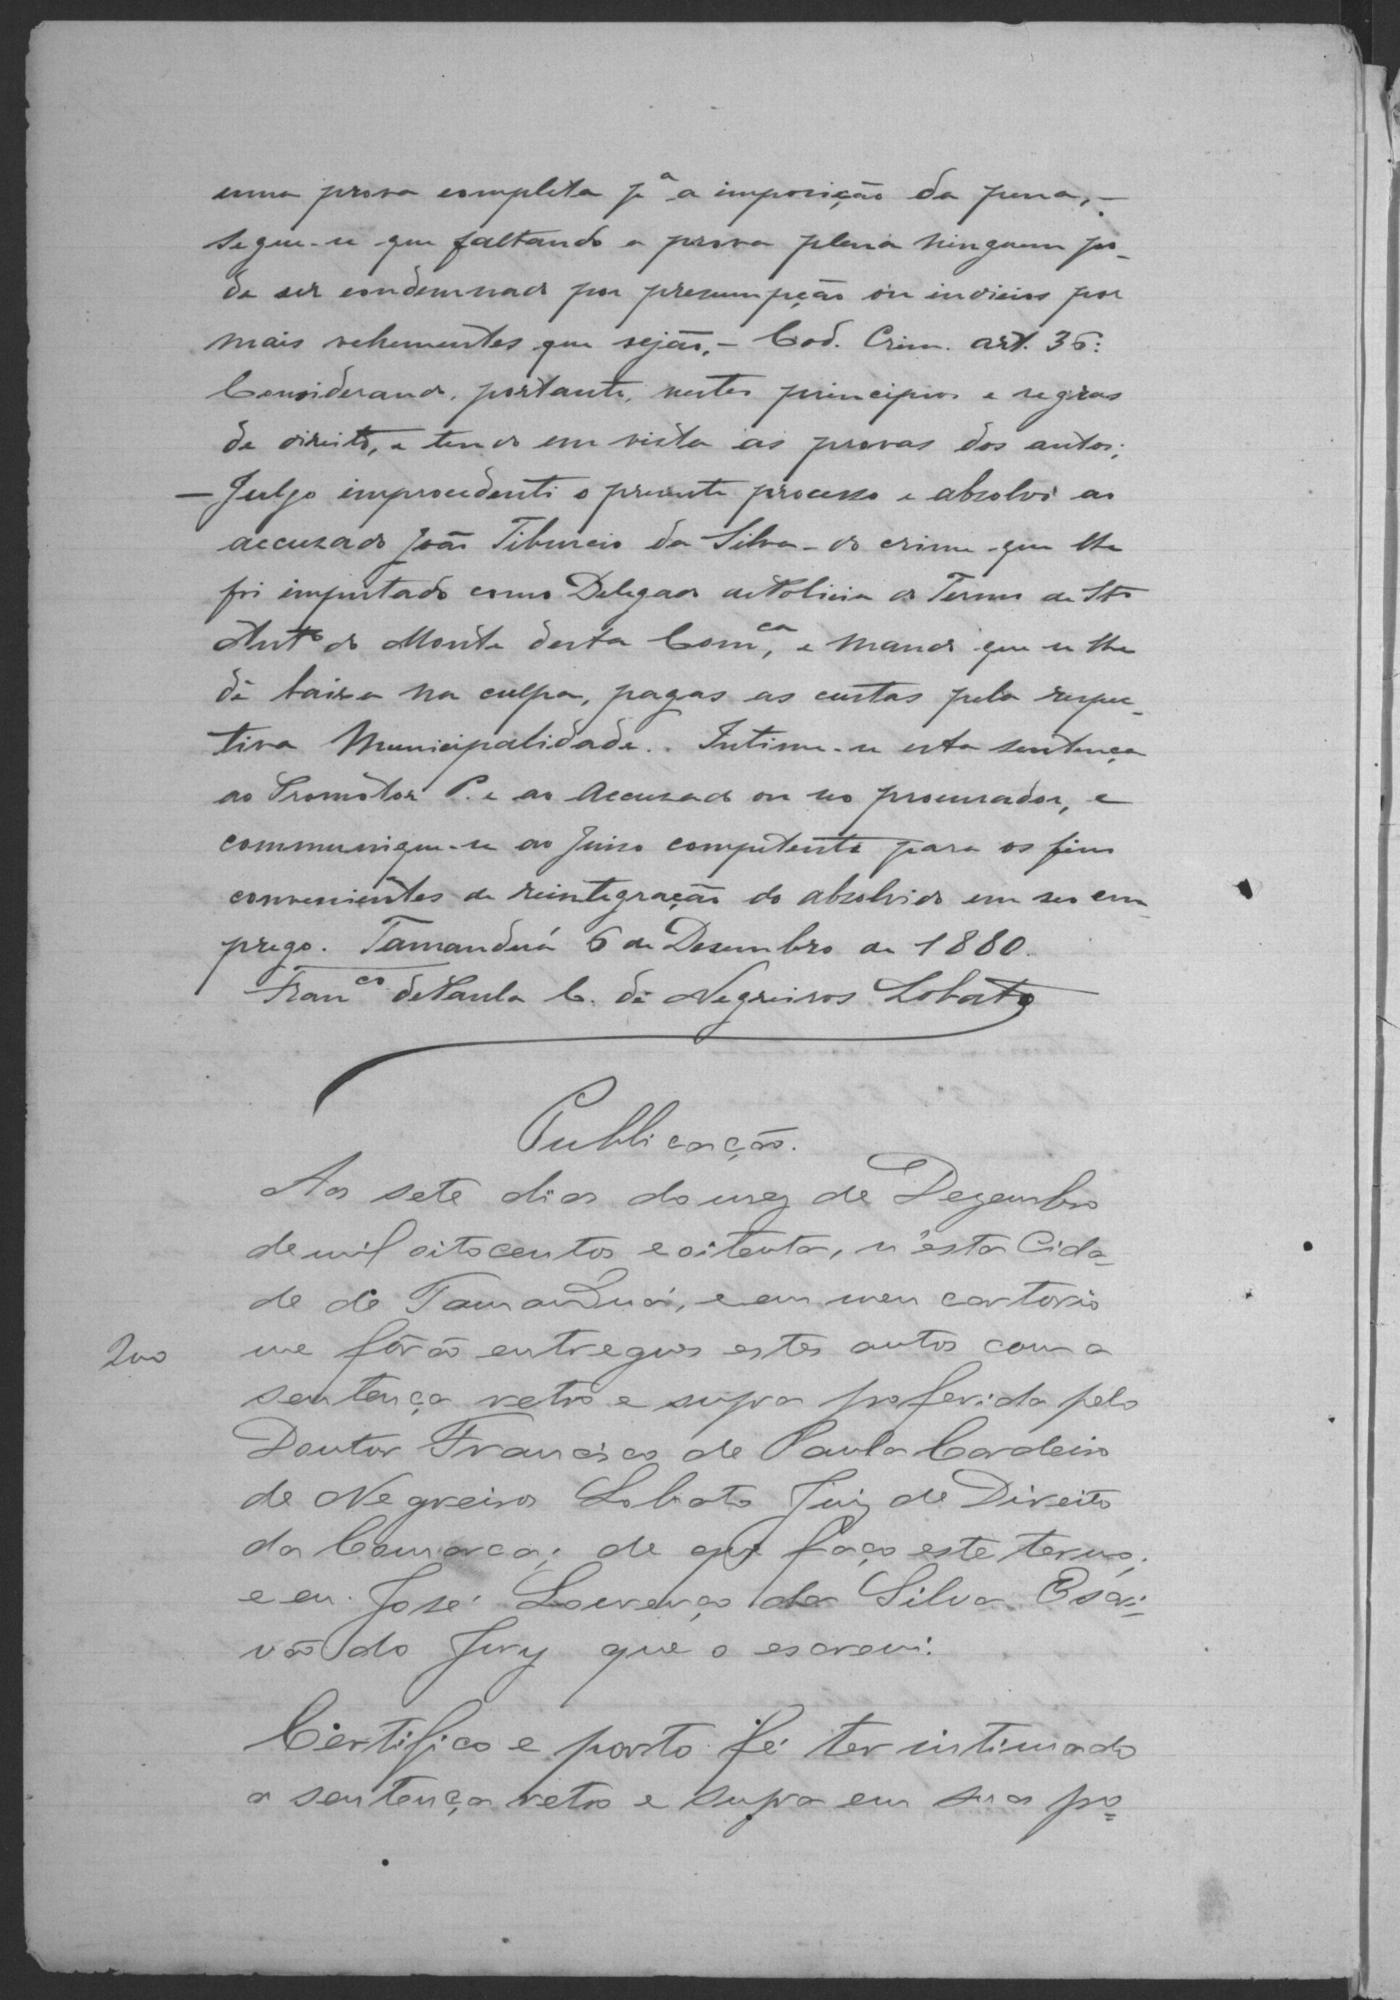 uma prova completa pª a imposição da pena, –
segue-se que faltando a prova plena ninguem po-
de ser condemnado por presumpção ou indicios por
mais vehementes que sejão, – Cod. Crim. art. 36:
Considerando, portanto, nestes principios e regras
de direito, e tendo em vista as provas dos autos;
– Julgo improcedente o presente processo e absolvo ao
accusado João Tiburcio da Silva – do crime que lhe
foi imputado como Delegado de Policia do Termo de Stº
Antº do Monte desta Comca, e mando que se lhe
dê baixa na culpa, pagas as custas pela respec-
tiva Municipalidade. . Intime-se esta sentença
ao Promotor P. e ao Accusado ou seo procurador, e
communique-se ao Juiso competente para os fins
convenientes de reintegração do absolvido em seo em-
prego. Tamanduá 6 de Desembro de 1880.
Franco de Paula C. de Negreiros Lobato
Publicação.
Aos sete dias do mez de Dezembro
de mil oitocentos e oitenta, n'esta Cida-
de de Tamanduá, e em meu cartorio
200
me fôrão entregues estes autos com a
sentença retro e supra proferida pelo
Doutor Francisco de Paula Cordeiro
de Negreiros Lobato Juiz de Direito
da Comarca; de que faço este termo.
e eu José Lourenço da Silva Escri-
vão do Jury que o escrevi.
Certifico e porto fé ter intimado
a sentença retro e supra em sua pro=